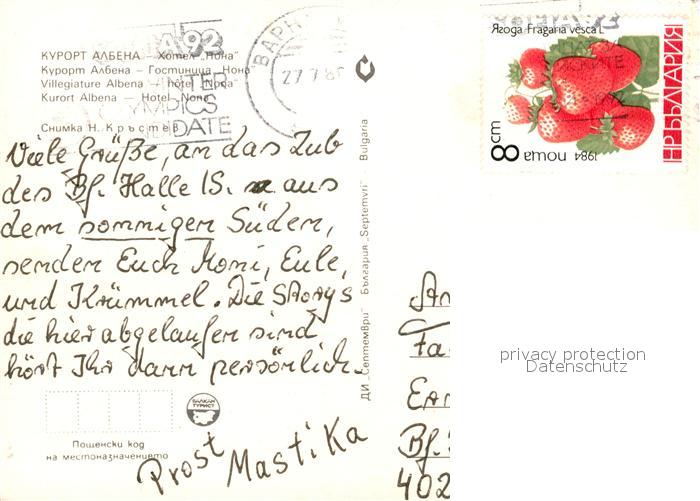 КУРОРТ АЛБЕНА — Хотел „Нона"
Курорт Албена — Гостиница „Нона"
Villegiature Albena — hôtel "Nona"
Kurort Albena — Hotel "Nona"
Снимка Н. Кръстев
92
WINTER
OLYMPICS
DATE
ВАРН
27.7.8
Ягода Fragaria vesca L
НР БЪЛГАРИЯ
8 cm
поща 1984
Viele Grüße, an das Zub
des Bf. Halle IS. aus
dem sonnigen Süden,
senden Euch Moni, Eule,
und Krümmel. Die Storys
die hier abgelaufen sind
hört Ihr dann persönlich.
Prost Mastika
ДИ „Септември" България „Septemvri" Bulgaria
БАЛКАН
ТУРИСТ
Пощенски код
на местоназначението
An
Fa
Bf.
402
privacy protection
Datenschutz